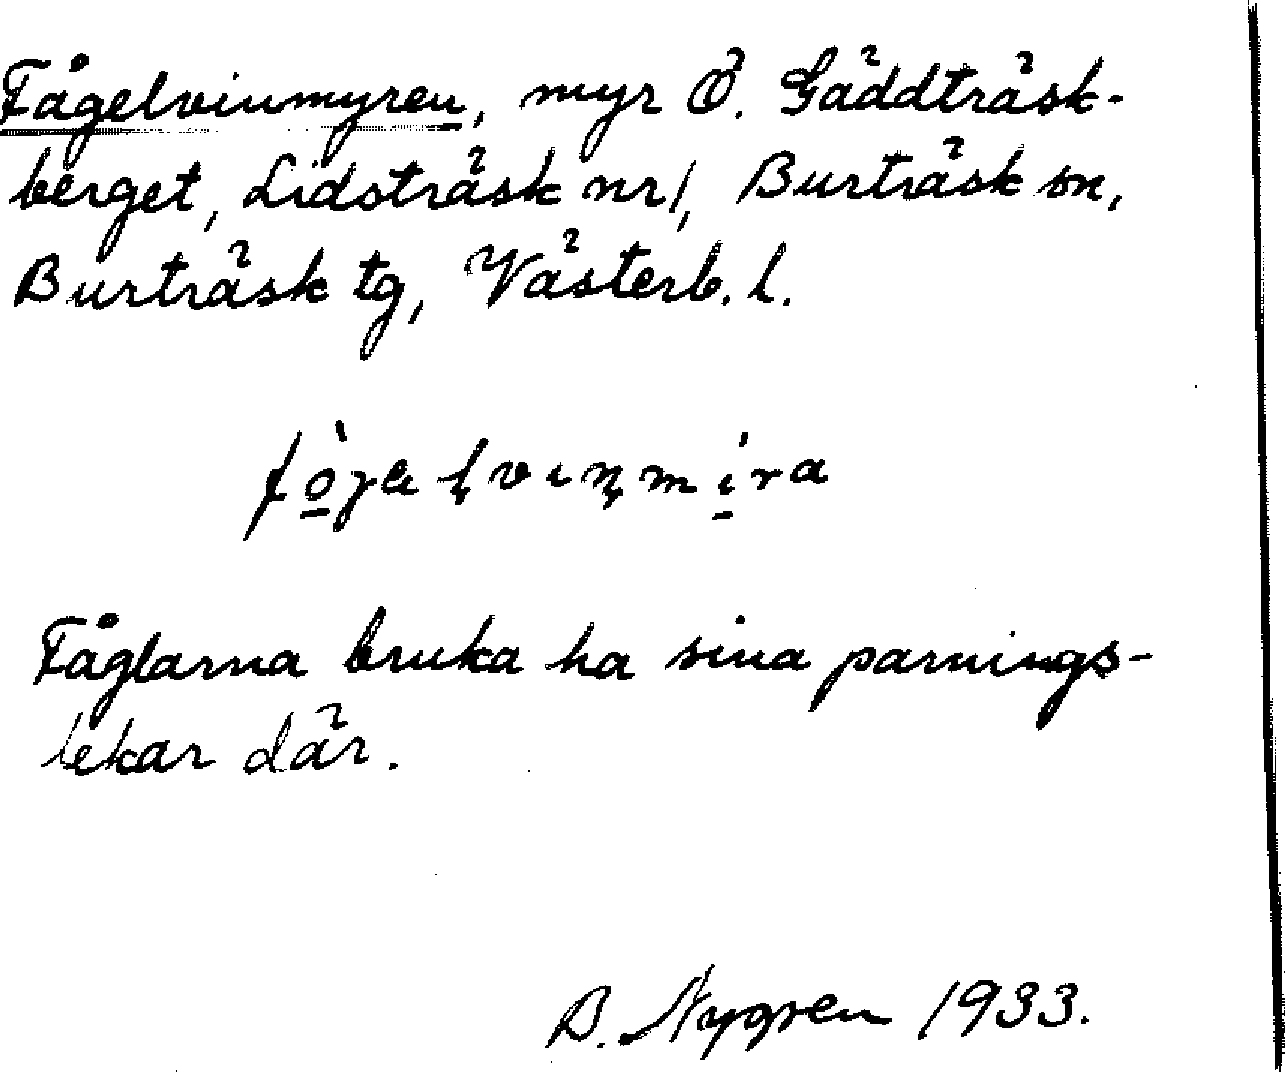 Fågelvinmyren, myr Ö. Gäddträsk-
berget, Lidsträsk nr 1, Burträsk sn,
Burträsk tg, Västerb. l.
Fåglarna bruka ha sina parnings-
lekar där.
B. Nygren 1933.